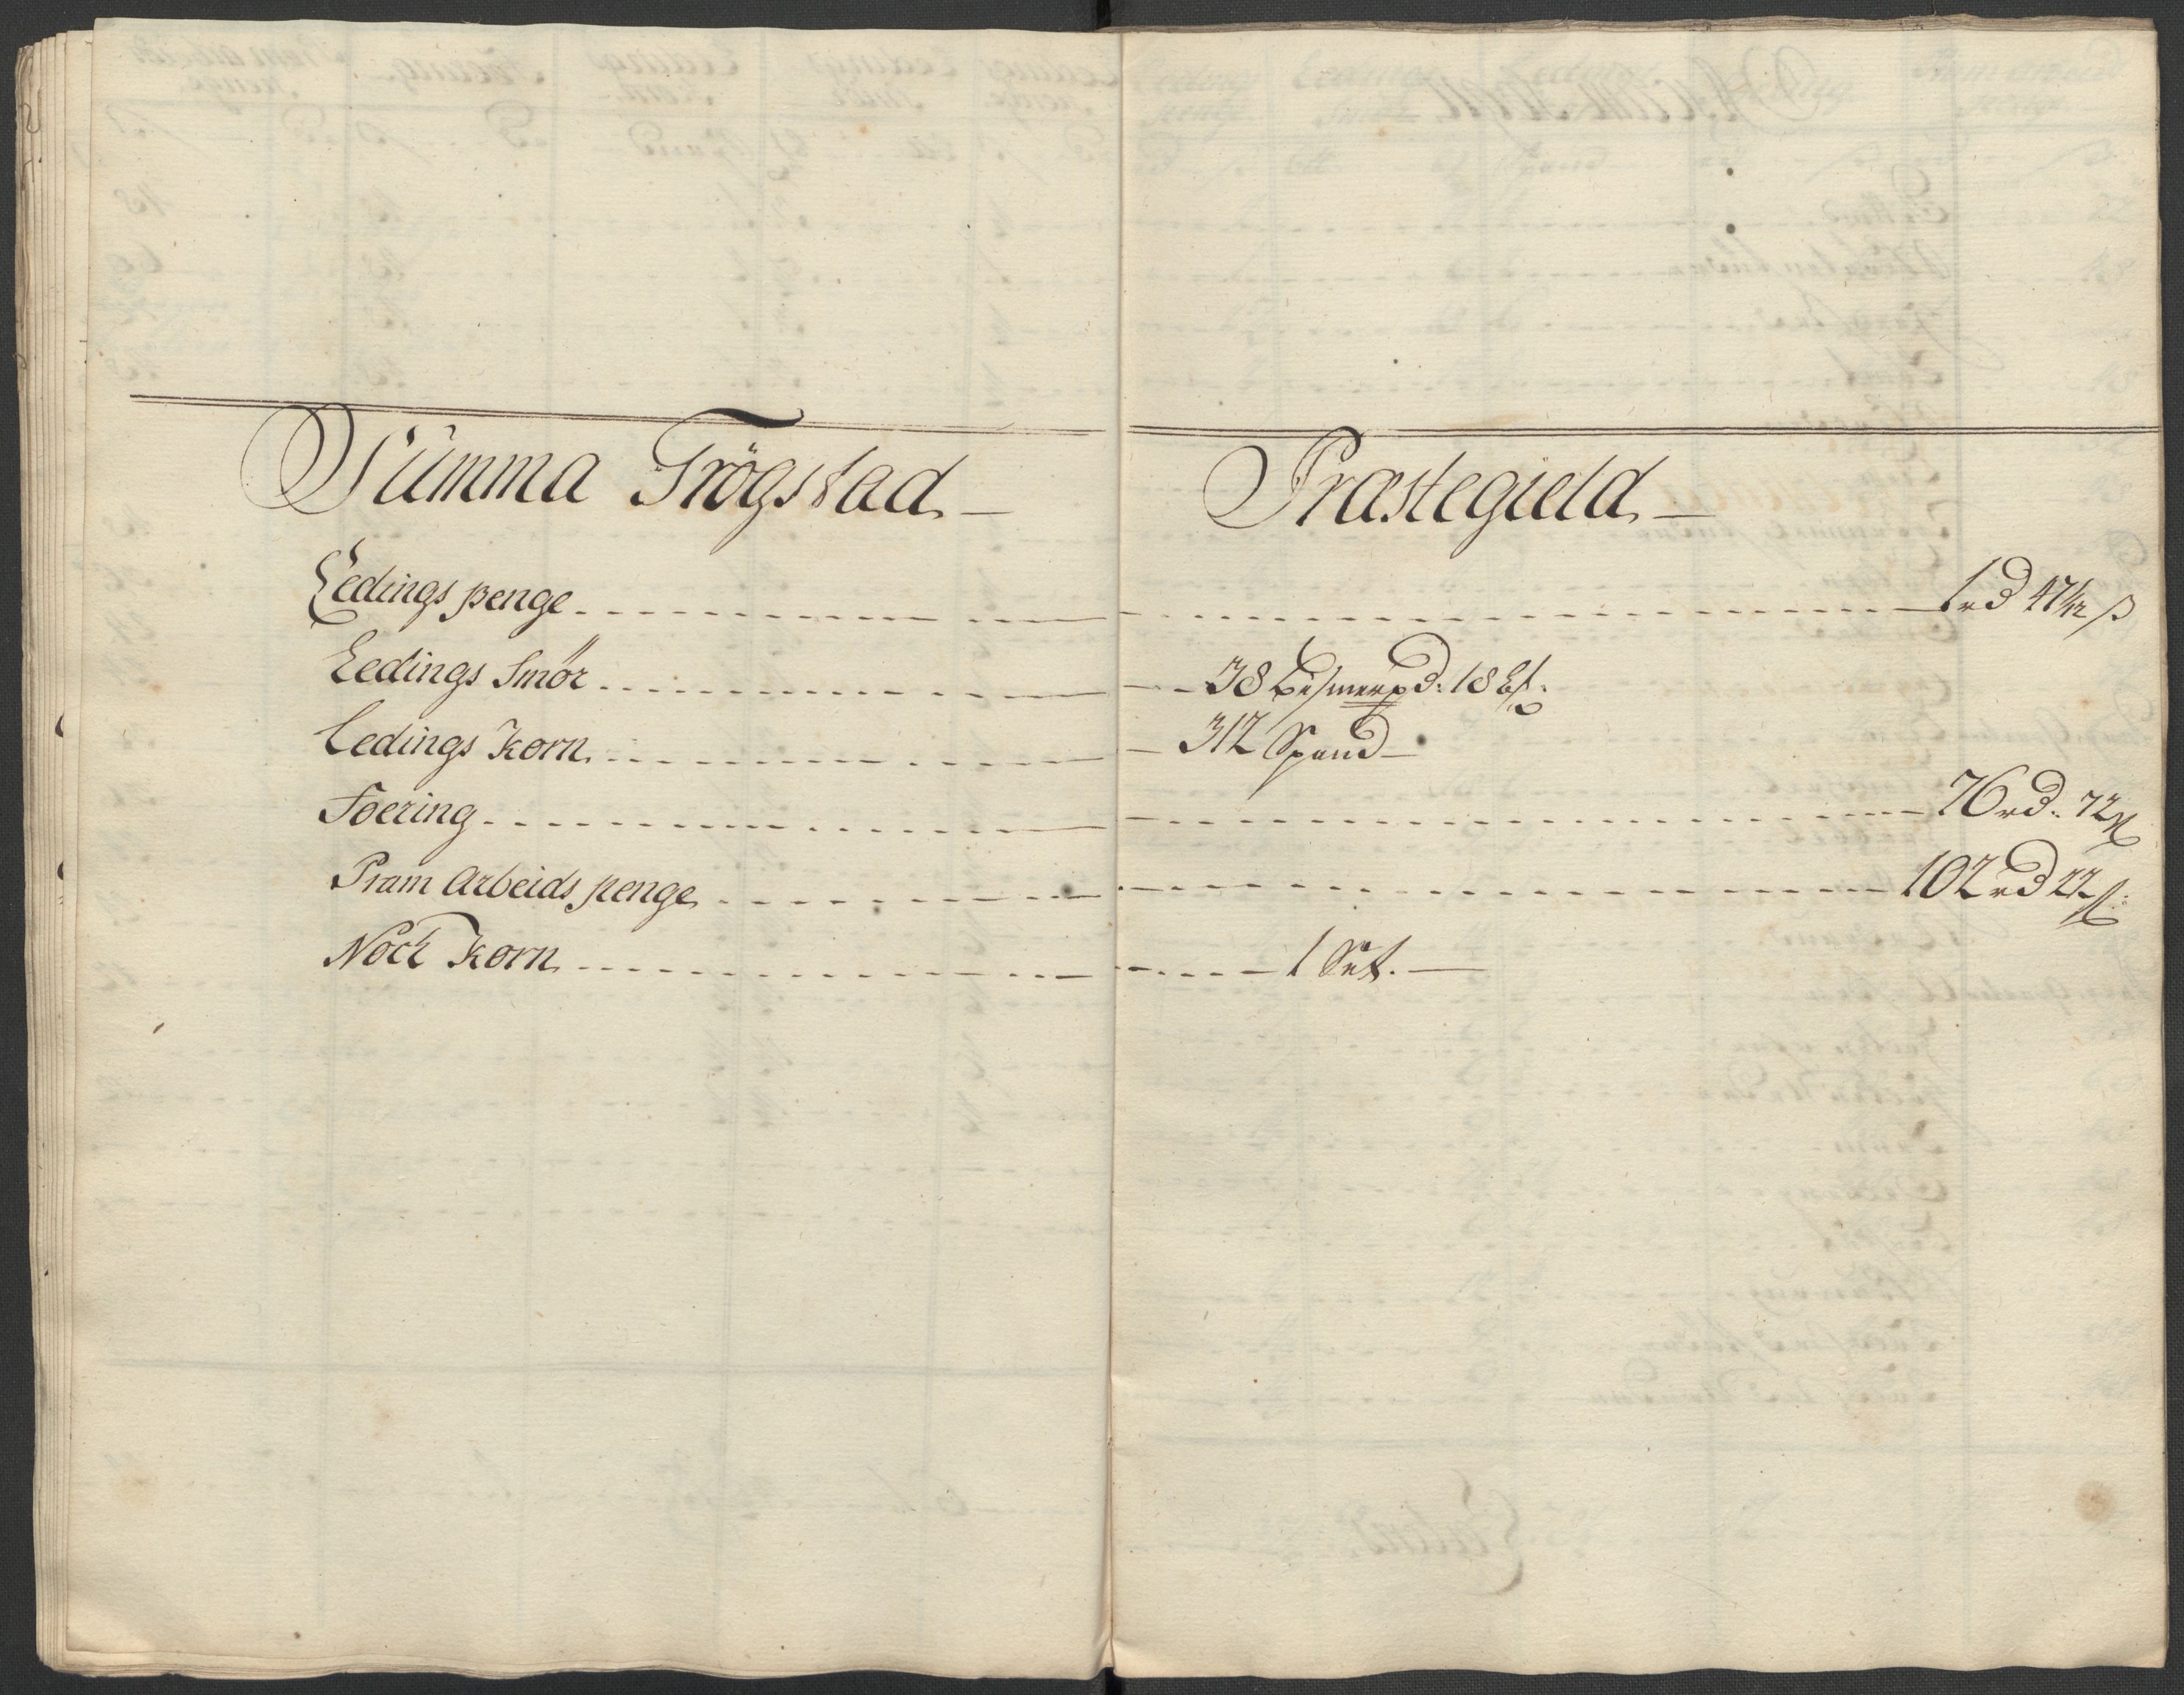 Summa Trögstad — Præstegield —
Ledings penge - - - 1 rd 47 1/2 β
Ledings Smör - - - 38 bismerpd: 18
Ledings Korn - - - 312 Spand —
Foering - - - 76 rd: 72 β
Pram Arbeids penge - - - 102 rd 22 β:
Noch Korn - - - 1 Set. —